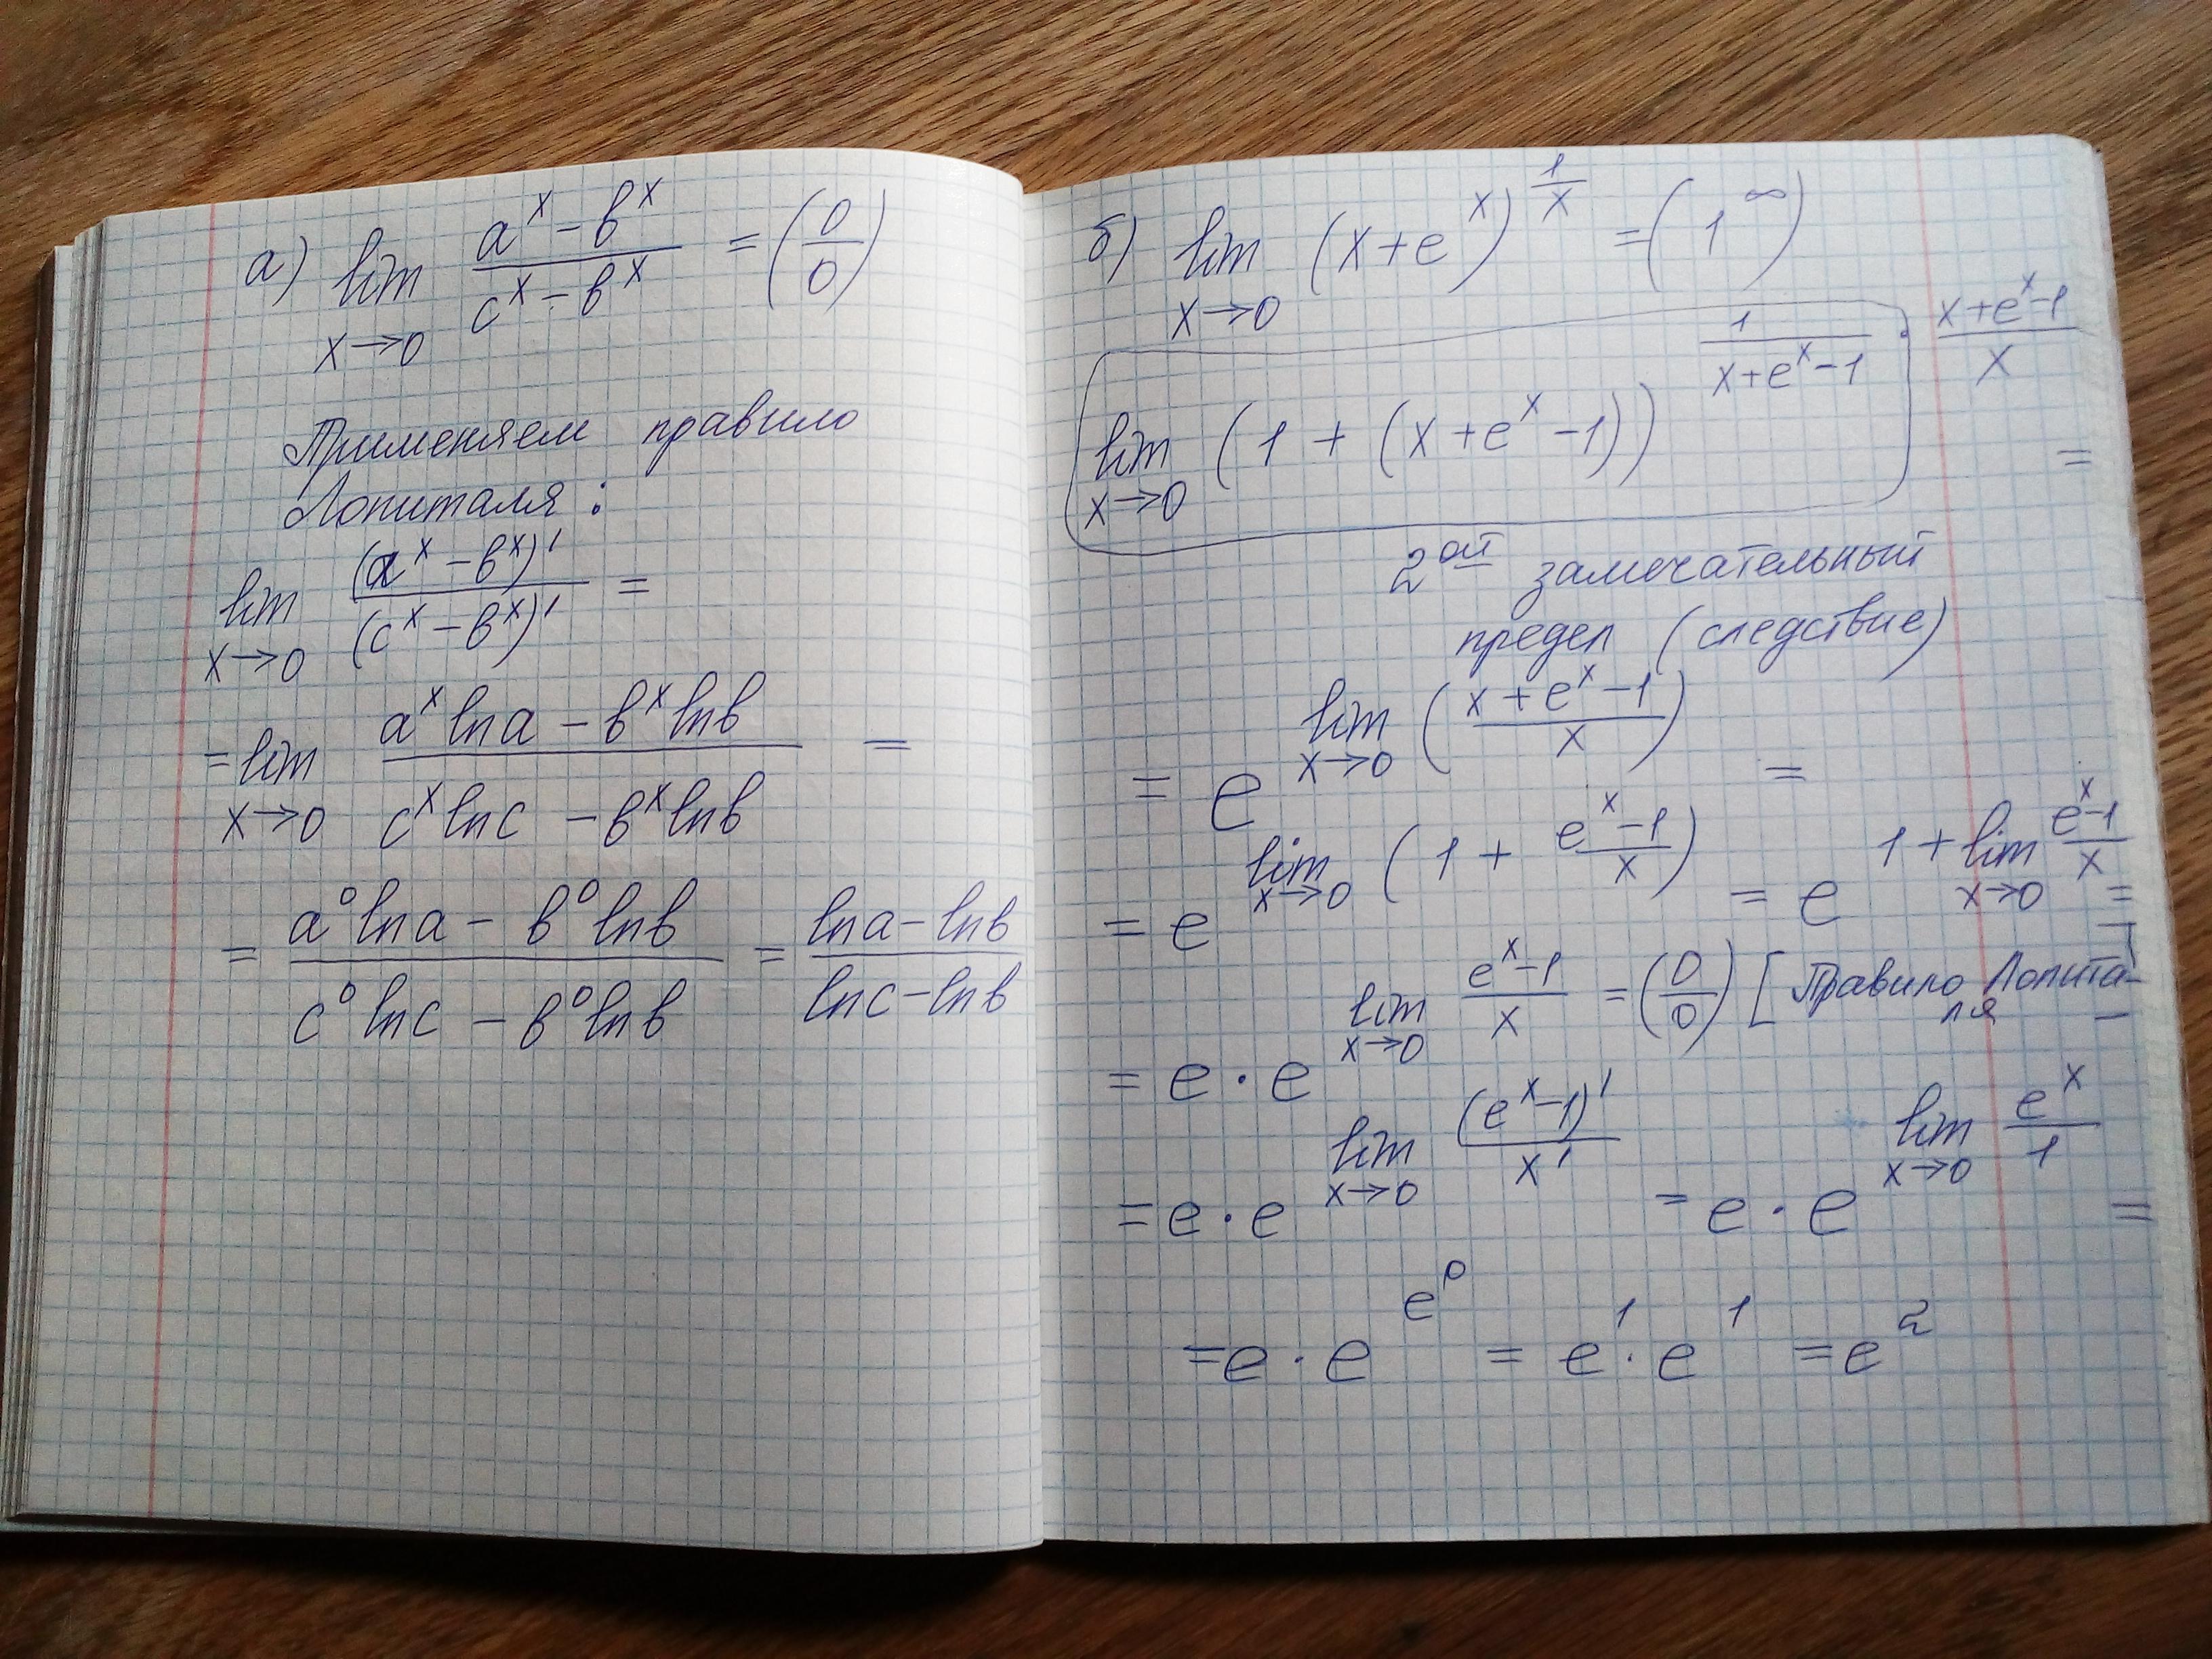 а) lim x→0 (a^x − b^x)/(c^x − b^x) = (0/0)
Применяем правило
Лопиталя:
lim x→0 (a^x − b^x)'/(c^x − b^x)' =
= lim x→0 (a^x ln a − b^x ln b)/(c^x ln c − b^x ln b) =
= (a^0 ln a − b^0 ln b)/(c^0 ln c − b^0 ln b) = (ln a − ln b)/(ln c − ln b)
б) lim x→0 (x+e^x)^(1/x) = (1^∞)
lim x→0 (1 + (x+e^x−1))^(1/(x+e^x−1) · (x+e^x−1)/x) =
2ой замечательный
предел (следствие)
= e^(lim x→0 ((x+e^x−1)/x)) =
= e^(lim x→0 (1 + (e^x−1)/x)) = e^(1 + lim x→0 (e^x−1)/x) =
= e · e^(lim x→0 (e^x−1)/x = (0/0) [Правило Лопита-
ля] =
= e · e^(lim x→0 (e^x−1)'/x') = e · e^(lim x→0 e^x/1) =
= e · e^(e^0) = e^1 · e^1 = e^2